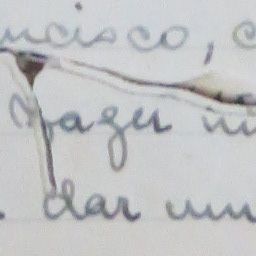 ncisco, c
fazer in
dar um